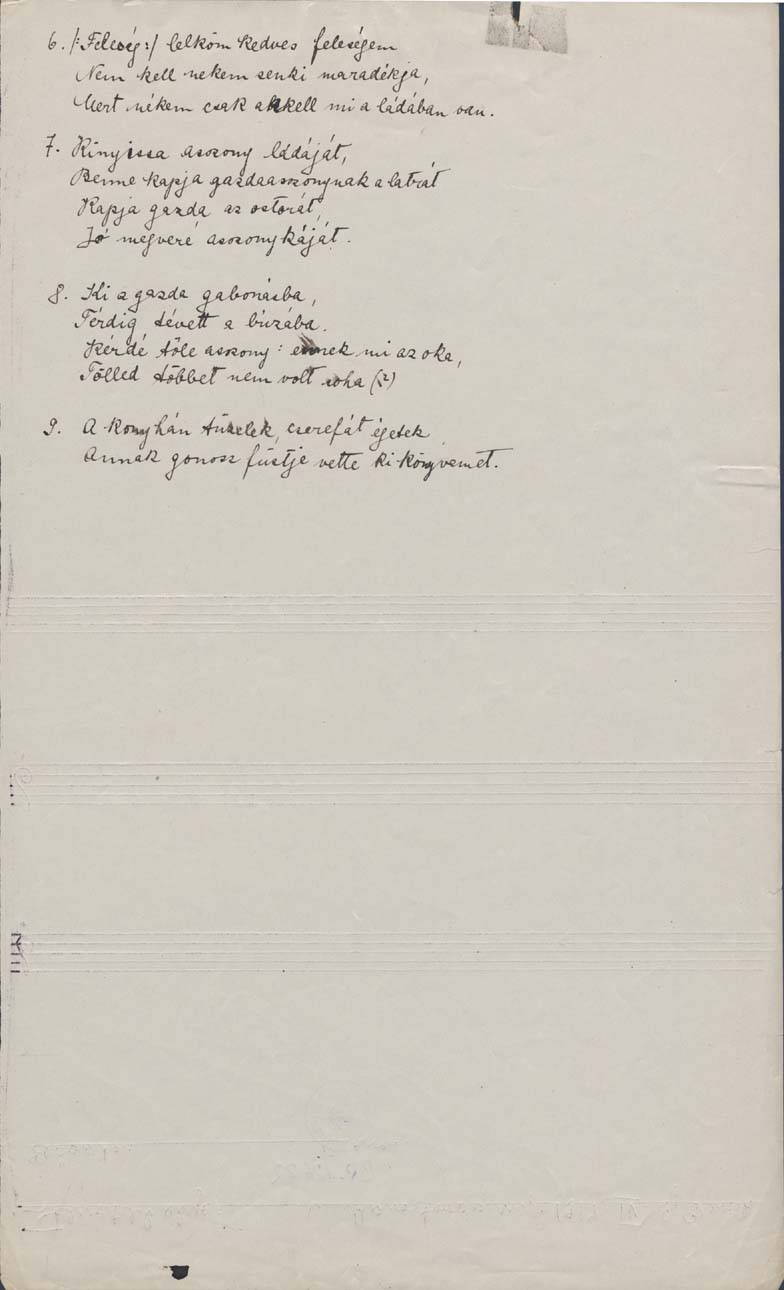 6. /:Feleség:/ lelköm kedves feleségem
Nem kell nekem senki maradékja,
Mert nékem csak akkell mi a ládában van.
7. Kinyissa asszony ládáját,
Benne kapja gazdaasszonynak a latrát
Kapja gazda az ostorát,
Jó megveré asszonykáját.
8. Ki a gazda gabonásba,
Térdig tévett a búzába.
Kérdé tőle asszony: ennek mi az oka,
Tőlled többet nem volt soha (?)
9. A konyhán tüzelek, cserefát égetek
Annak gonosz füstje vette ki könyvemet.